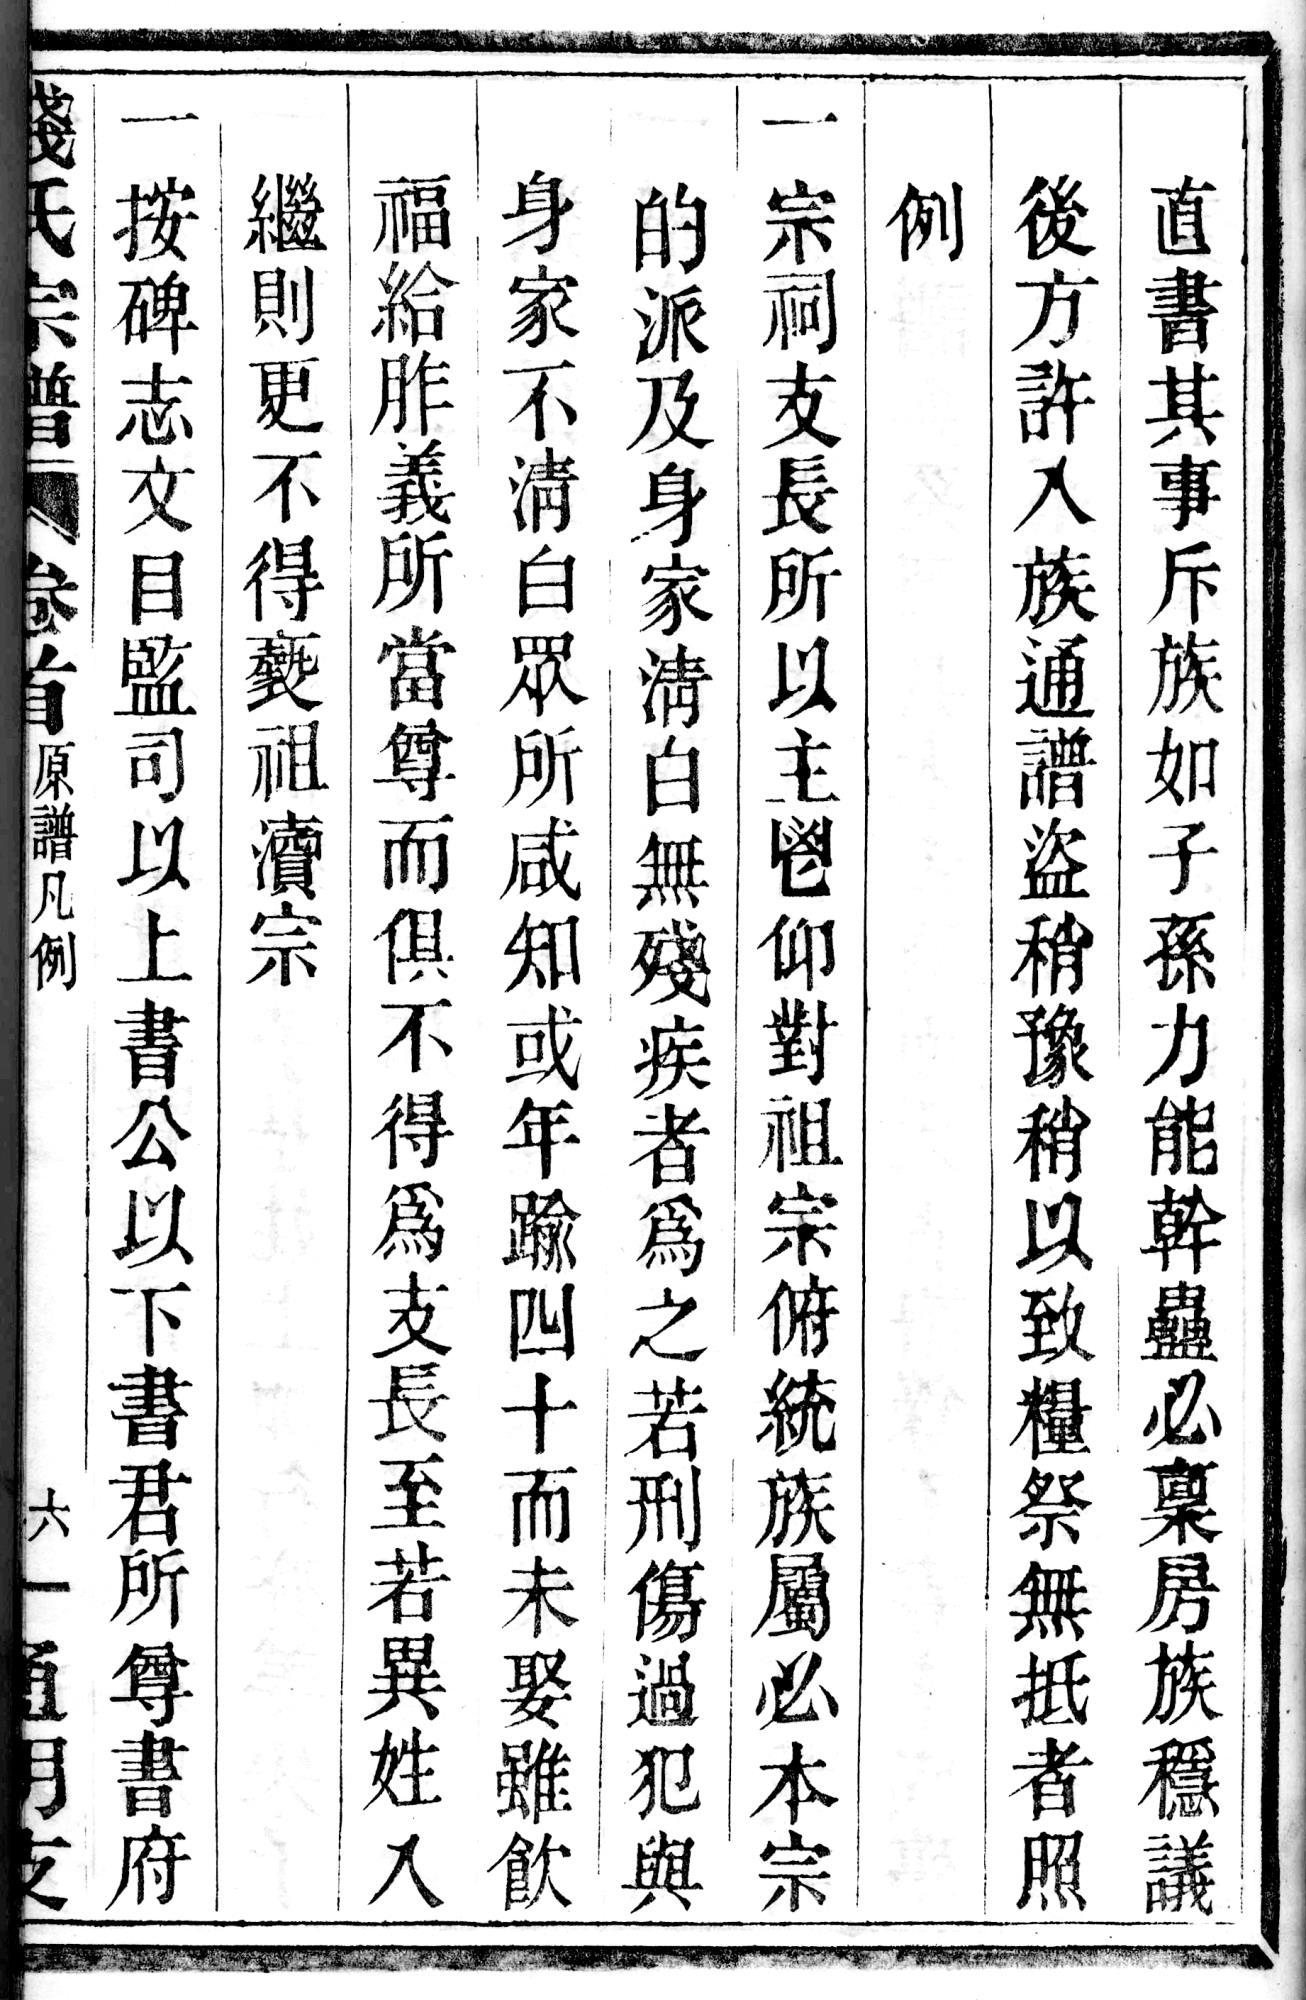 直書其事斥族如子孫力能幹蠱必稟房族穩議
後方許入族通譜盜稍豫稍以致糧祭無抵者照
例
一宗祠支長所以主鬯仰對祖宗俯統族屬必本宗
的派及身家淸白無殘疾者爲之若刑傷過犯與
身家不淸白眾所咸知或年踰四十而未娶雖飮
福給胙義所當尊而俱不得爲支長至若異姓入
繼則更不得褻祖瀆宗
一按碑志文目監司以上書公以下書君所尊書府
錢氏宗譜 卷首 原譜凡例 六 通明支